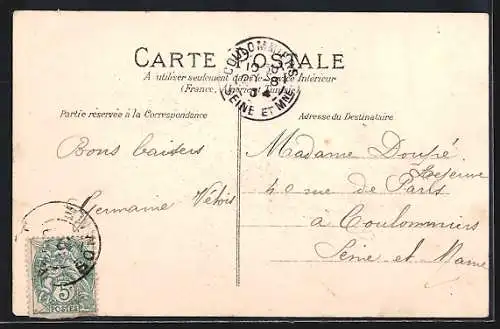 CARTE POSTALE
COULOMMIERS
SEINE ET MNE
A utiliser seulement dans le Service Intérieur
(France, Algérie et Tunisie)
Partie réservée à la Correspondance
Adresse du Destinataire
Bons baisers
Germaine
Madame Doupé
Lejeune
40 rue de Paris
à Coulommiers
Seine et Marne
5
POSTES